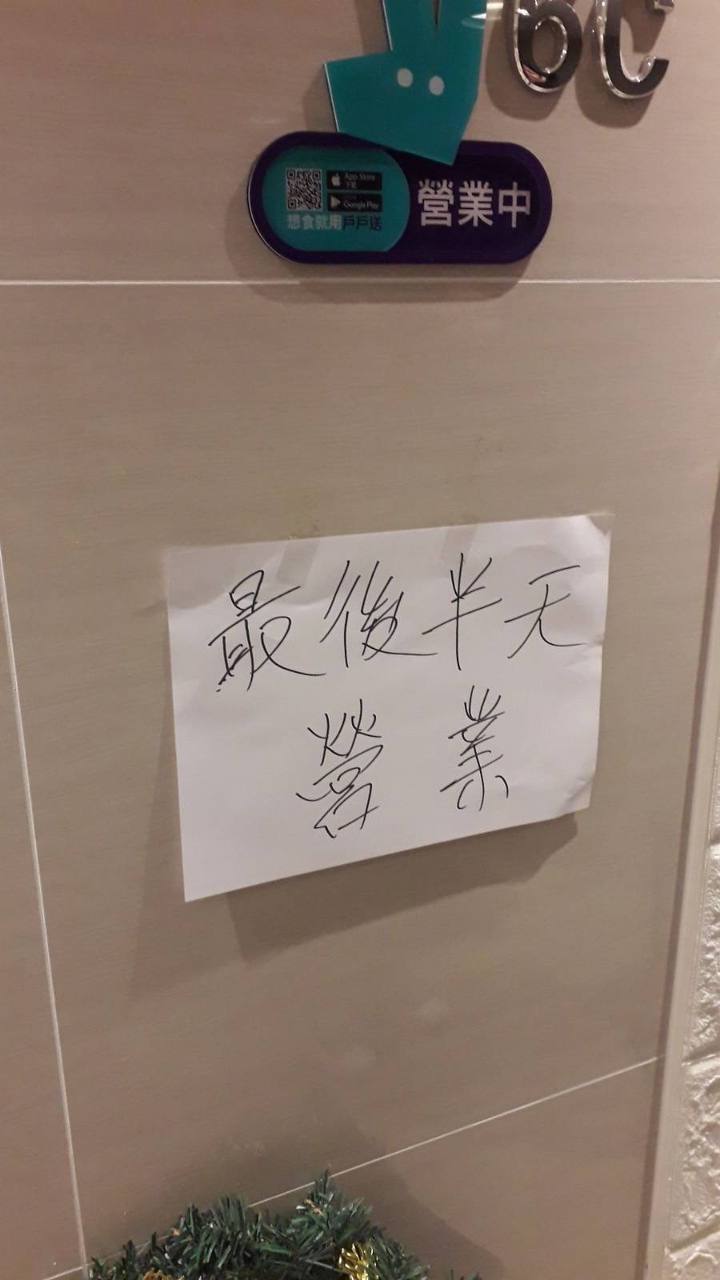 6C
App Store
下載
Google Play
想食就用戶戶送
營業中
最後半天
營業